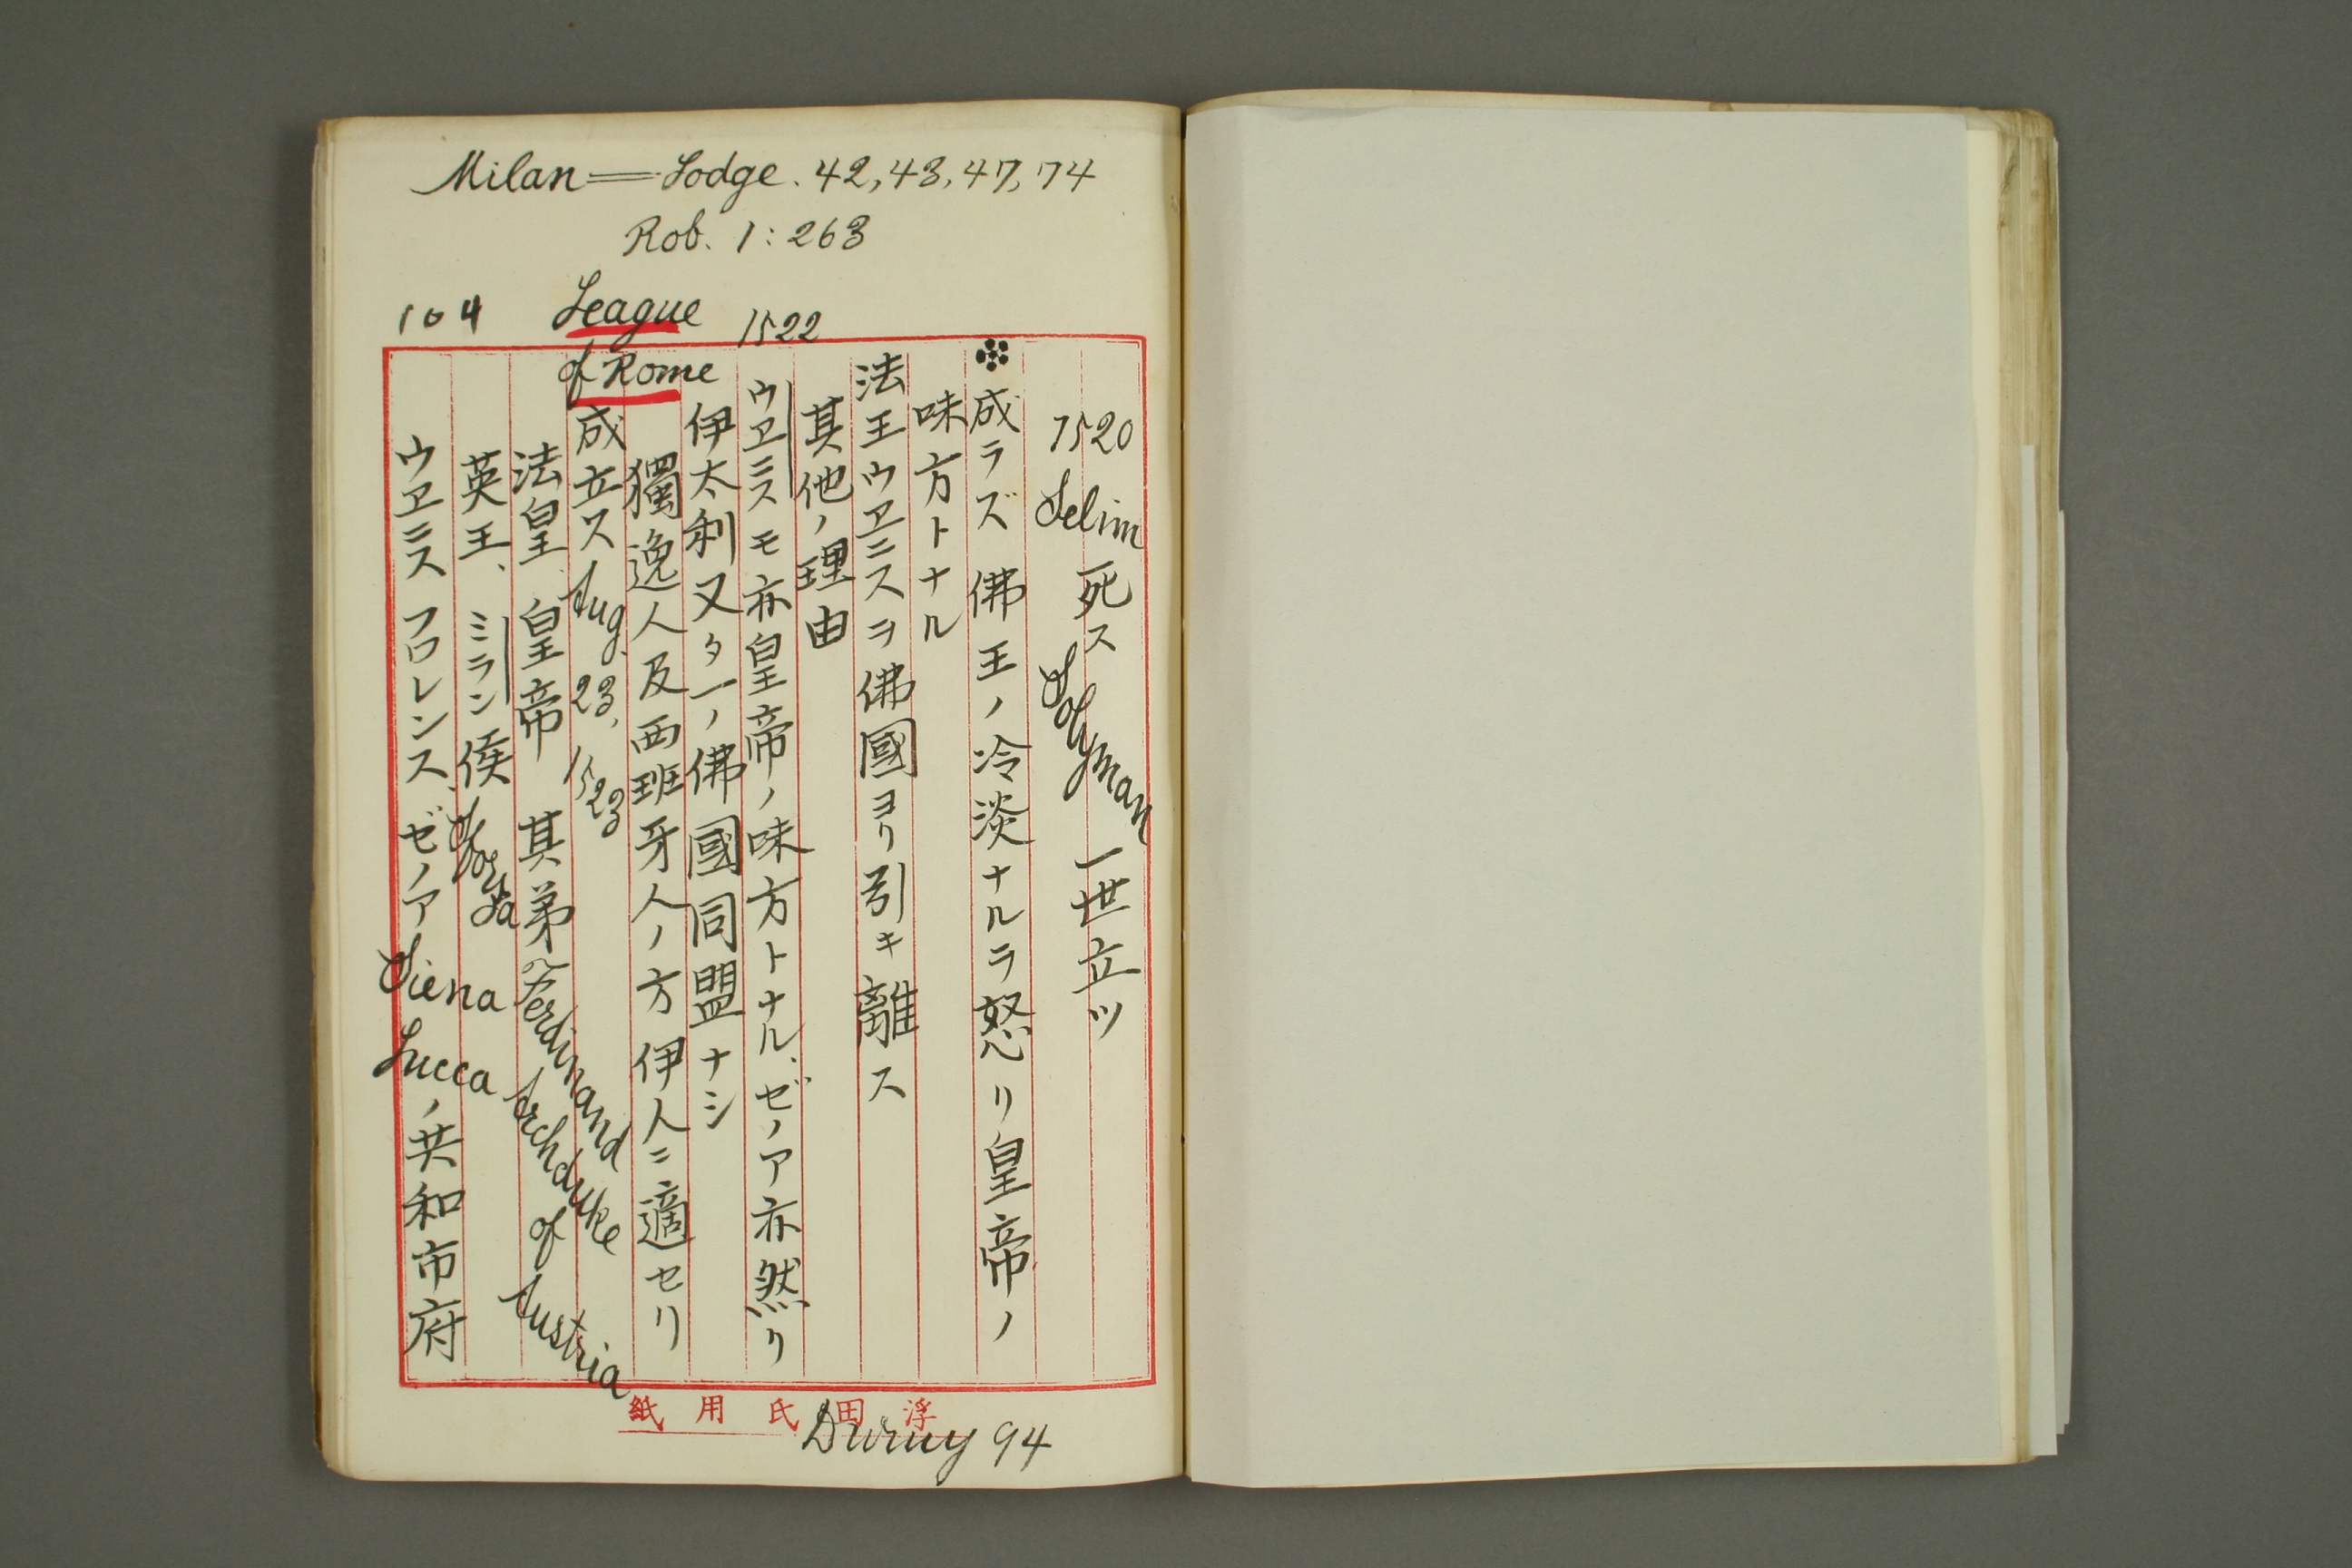 Milan = Lodge. 42, 43, 47, 74
Rob. 1: 263
1520 Selim 死ス Solyman 一世立ツ
成ラズ 佛王ノ冷淡ナルヲ怒リ皇帝ノ
味方トナル
法王ウヱニスヲ佛國ヨリ引キ離ス
其他ノ理由
1522
ウヱニスモ亦皇帝ノ味方トナル、ゼノア亦然リ
伊太利又タ一ノ佛國同盟ナシ
獨逸人及西班牙人ノ方伊人ニ適セリ
League of Rome 成立ス Aug. 23, 1523
法皇 皇帝 其弟 Ferdinand Archduke of Austria
英王、ミラン侯 Sforza
ウヱニス フロレンス、ゼノア Siena Lucca ノ共和市府
104
浮田氏用紙
Duruy 94